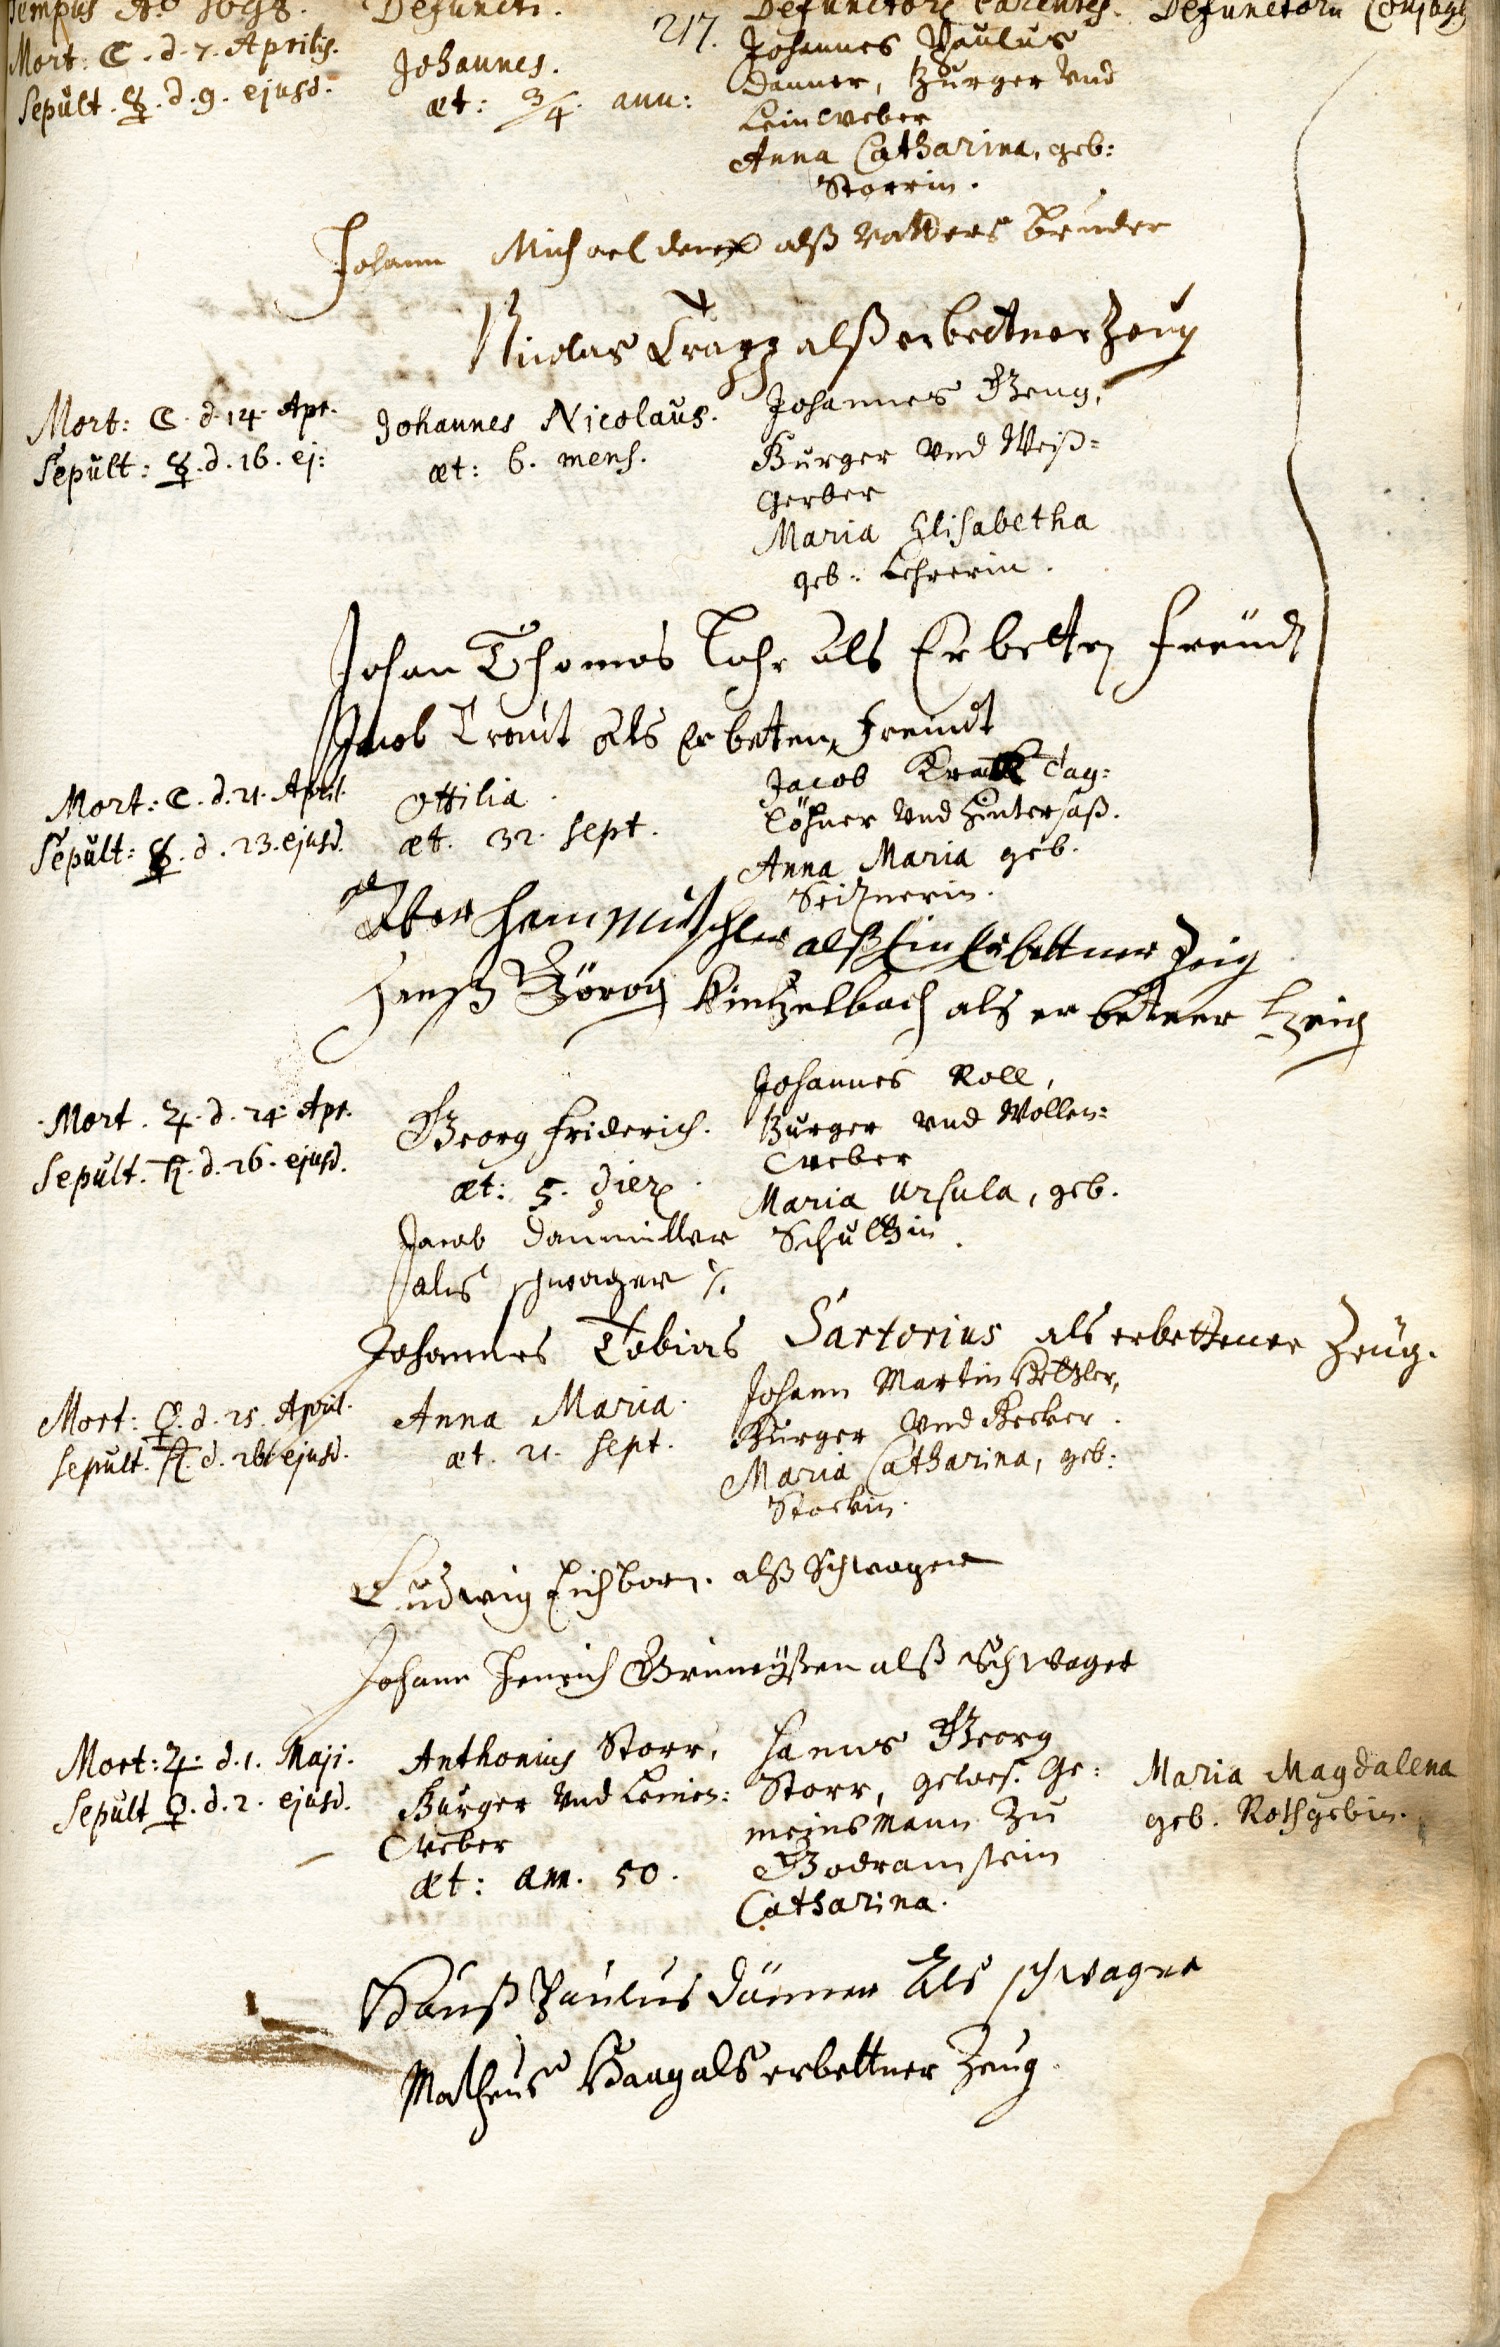 Tempus Ao 1698. Defuncti. 217. Defunctorum Parentes. Defunctoru Conjuges
Mort: ☾. d. 7. Aprilis.
Sepult. ☿. d. 9. ejusd.
Johannes.
æt: 3/4. ann:
Johannes Paulus
Danner, Burger und
Leinweber
Anna Catharina, geb:
Storrin.
Johann Michael alß Vatters bruder
Nicolas Trapp alß erbettner Zeug
Mort: ☾. d. 14. Apr.
Sepult: ☿. d. 16. ej:
Johannes Nicolaus.
æt: 6. mens.
Johannes Geng,
Burger und Weiß=
Gerber
Maria Elisabetha
geb: Lehrerin.
Johan Thomas Lohr als Erbetten freund
Jacob Traut als Erbetten freundt
Mort: ☾. d. 21. April.
Sepult: ☿. d. 23. ejusd.
Ottilia.
æt. 32. sept.
Jacob Tag=
löhner und Hintersaß.
Anna Maria geb.
Seitznerin.
alß Ein Erbettner Zeig
Hanß Görog Kintzelbach als erbetner Zeich
Mort. ♃. d. 24. Apr.
Sepult. ♄. d. 26. ejusd.
Georg Friderich.
æt: 5. dier.
Johannes Roll,
Burger und Wollen=
weber
Maria Ursula, geb.
Schultzin.
Jacob Daumiller
als schwager
Johannes Tobias Sartorius als erbettener Zeug.
Mort: ♀. d. 25. April.
Sepult. ♄. d. 26. ejusd.
Anna Maria.
æt. 21. sept.
Johann Martin
Burger und Becker.
Maria Catharina, geb:
Storkin.
Ludwig Eichborn. alß Schwager
Johann Henrich alß Schwager
Mort: ♃. d. 1. Maji.
Sepult ♀. d. 2. ejusd.
Anthonius Storr,
Burger und Leinen=
weber
æt: ann. 50.
Hanns Georg
Storr, gewes. Ge=
meinsmann zu
Godramstein
Catharina.
Maria Magdalena
geb. Rothgebin.
Hanß Paulus Danner als schwager
Matheus Haug als erbettner Zeug.